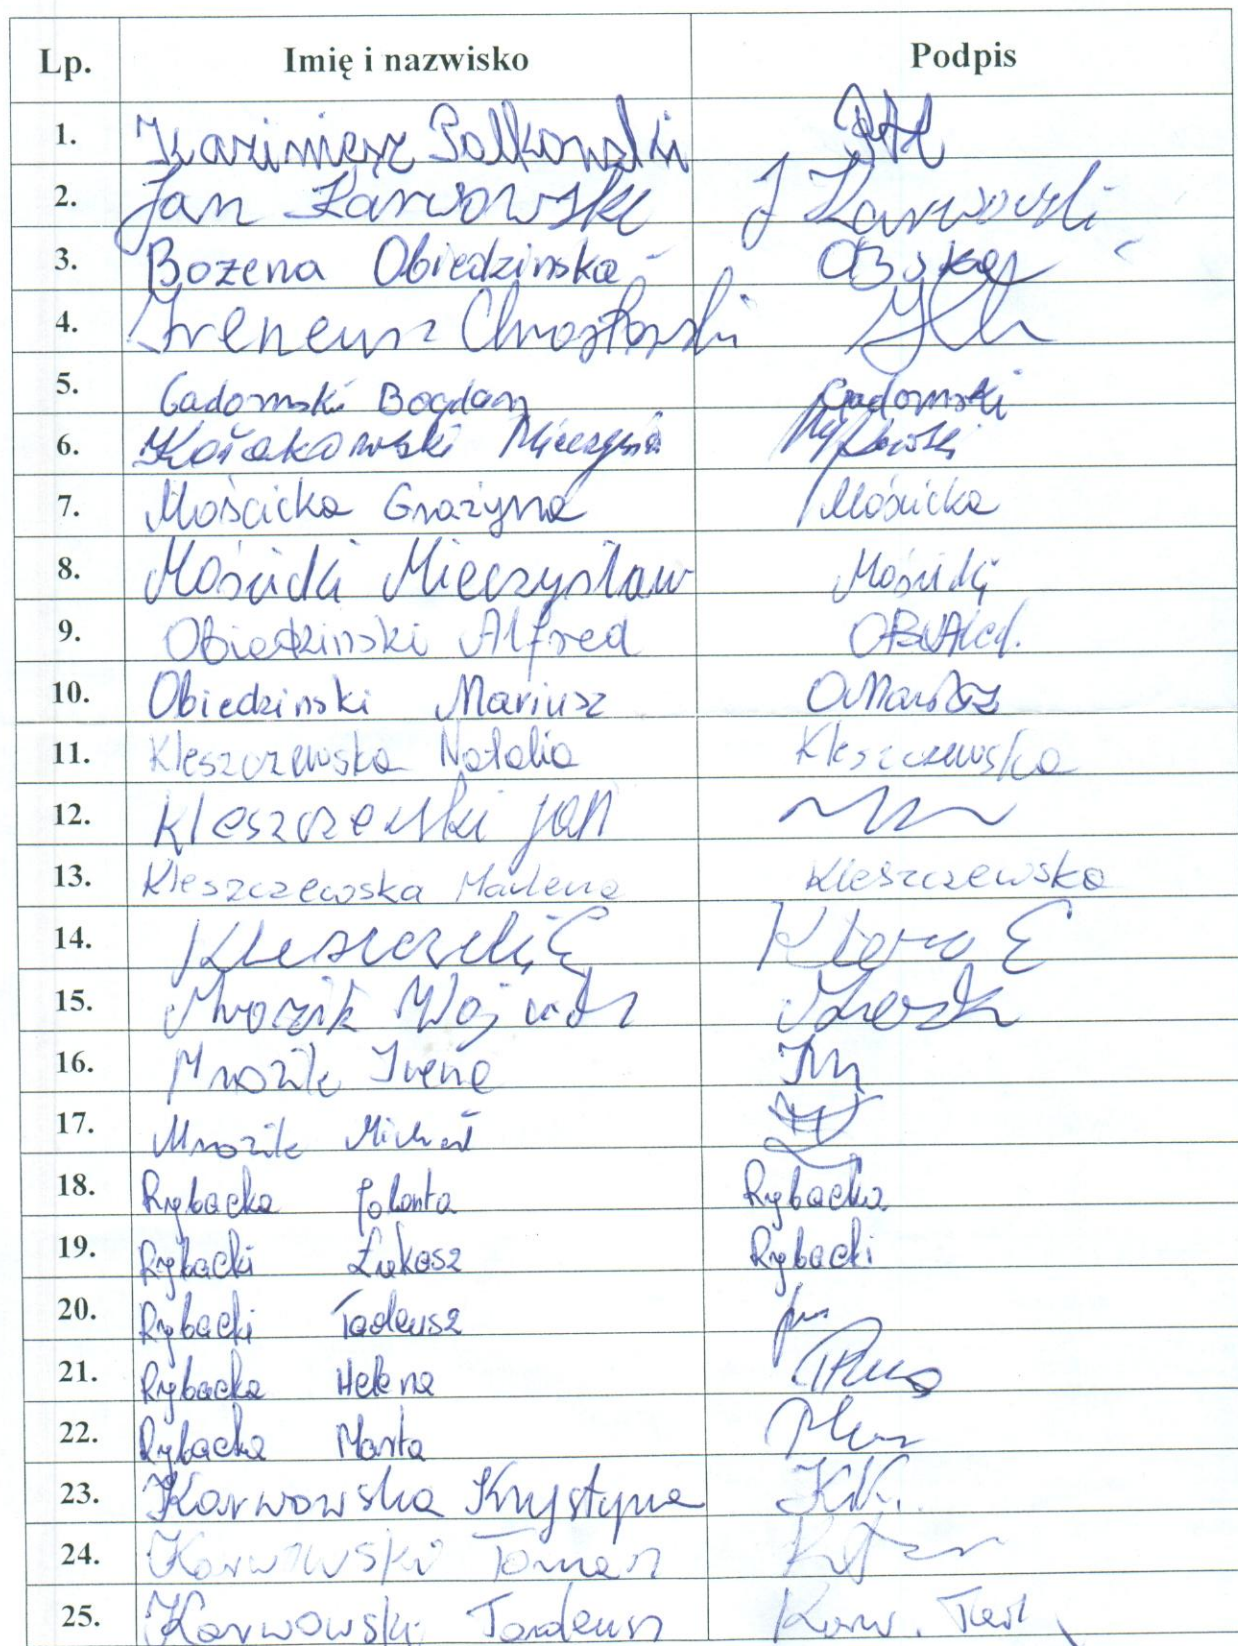 Lp. Imię i nazwisko Podpis
1. Kazimierz Polkowski
2. Jan Karwowski J Karwowski
3. Bożena Obiedzińska OB ska
4. Ireneusz Chrostowski
5. Gadomski Bogdan Gadomski
6. Kołakowski
7. Mościcka Grażyna Mościcka
8. Mościcki Mieczysław Mościcki
9. Obiedziński Alfred
10. Obiedzinski Mariusz
11. Kleszczewska Natalia Kleszczewska
12. Kleszczewski Jan
13. Kleszczewska Marlena Kleszczewska
14.
15. Mrozik Wojciech
16. Mrozik Irena
17. Mrozik Michał
18. Rybacka Jolanta Rybacka
19. Rybacki Łukasz Rybacki
20. Rybacki Tadeusz
21. Rybacka Helena
22. Rybacka Marta
23. Karwowska Krystyna KK.
24. Karwowski Tomasz
25. Karwowski Tadeusz Karw. Tad